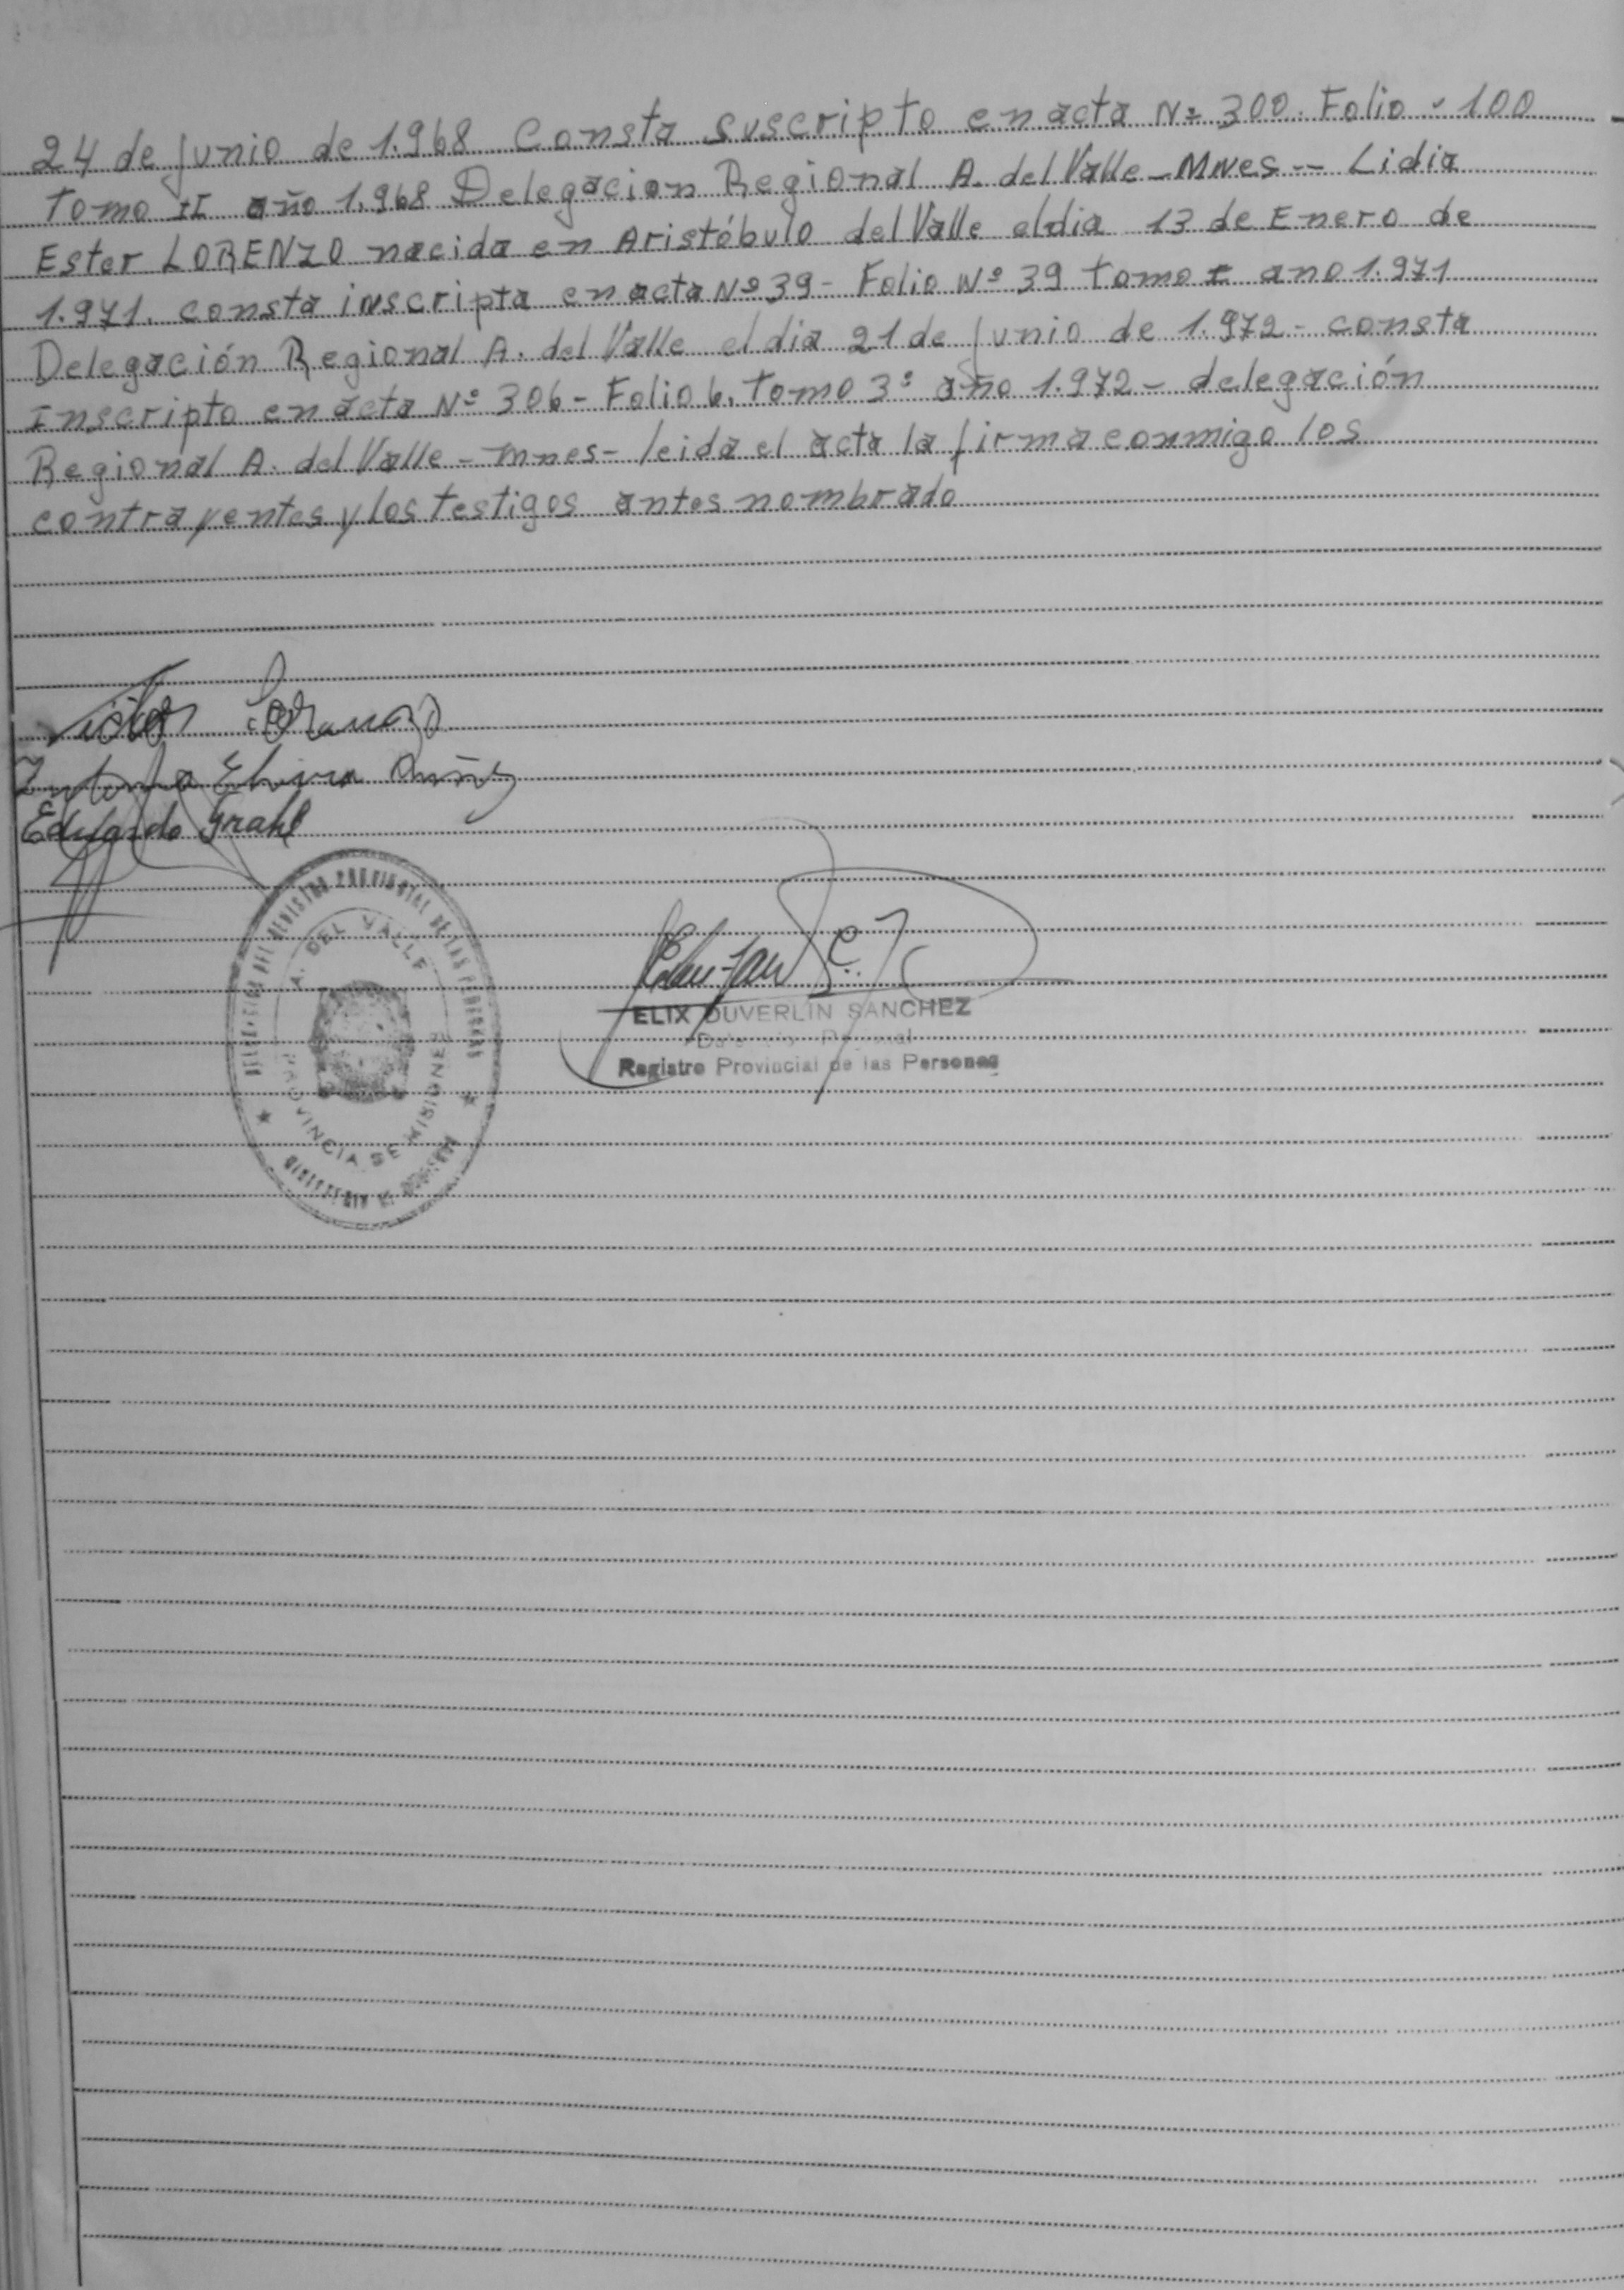 24 de Junio de 1.968 Consta suscripto en acta Nº 300. Folio - 100
Tomo II año 1.968 Delegacion Regional A. del Valle - MNes -- Lidia
Ester LORENZO nacida en Aristóbulo del Valle el dia 13 de Enero de
1.971. consta inscripta en acta Nº 39 - Folio Nº 39 tomo I ano 1.971
Delegación Regional A. del Valle el dia 21 de Junio de 1.972 - consta
Inscripto en acta Nº 306 - Folio 6. Tomo 3º año 1.972 - delegación
Regional A. del Valle - mnes - leida el acta la firma conmigo los
contrayentes y los testigos antes nombrado
Victor Lorenzo
Elvira
Eduardo Grahl
A. DEL VALLE
PROVINCIA DE MISIONES
ELIX DUVERLIN SANCHEZ
Registro Provincial de las Personas